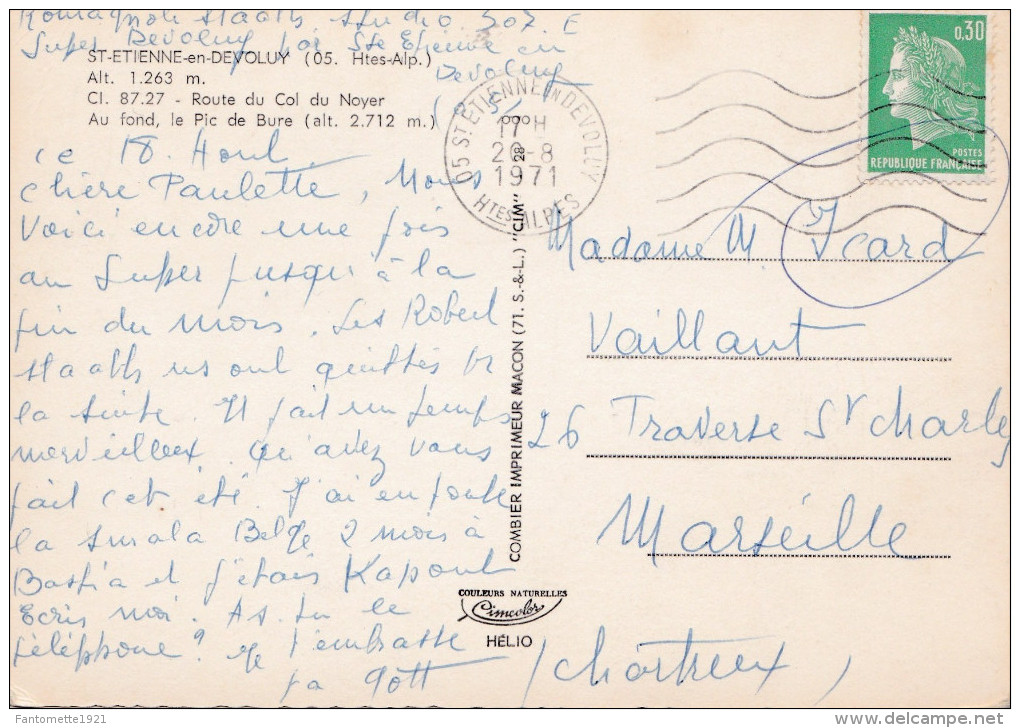 Romagnole Staath studio 507 E
Super Devoluy par Ste Etienne en
Devoluy
ST-ETIENNE-en-DEVOLUY (05. Htes-Alp.)
Alt. 1.263 m.
Cl. 87.27 - Route du Col du Noyer
Au fond, le Pic de Bure (alt. 2.712 m.)
05 ST ETIENNE EN DEVOLUY
17 H
20-8
1971
HTES ALPES
0,30
POSTES
REPUBLIQUE FRANÇAISE
ce 18. Aout.
chère Paulette, Nous
Voici encore une fois
au Super jusqu'à la
fin du mois. Les Robert
Staath ns ont quittés
la suite. Il fait un temps
merveilleux. Qu'avez vous
fait cet été. J'ai eu toute
la smala Belge 2 mois à
Bastia et j'étais Kapout
Ecris moi. As-tu le
téléphone? Je t'embrasse
ta Gott
COMBIER IMPRIMEUR MACON (71. S.-&-L.) "CIM"
COULEURS NATURELLES
Cimcolor
HÉLIO
Madame M. Icard
Vaillant
26 Traverse St Charles
Marseille
(Chartreux)
Fantomette1921
delcampe.net